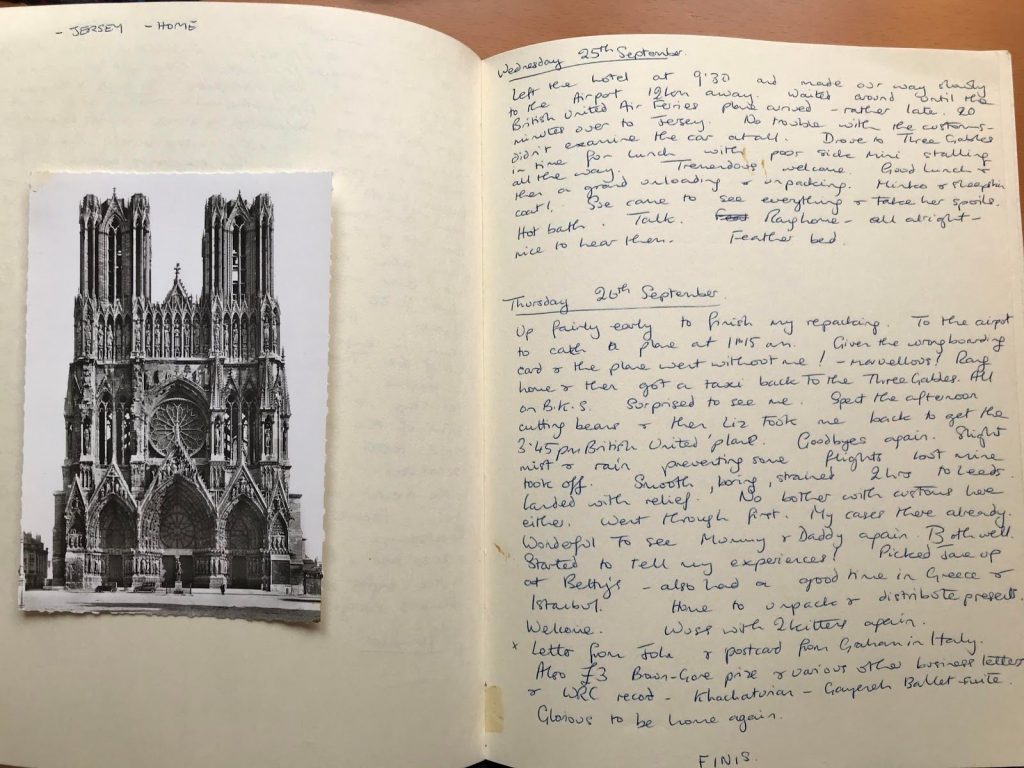 - JERSEY - HOME
Wednesday 25th September.
Left the hotel at 9.30 and made our way slowly
to the Airport 12km away. Waited around until the
British United Air Ferries plane arrived - rather late. 20
minutes over to Jersey. No trouble with the customs -
didn't examine the car at all. Drove to Three Gables
in time for lunch with poor sick Mini stalling
all the way. Tremendous welcome. Good lunch &
then a grand unloading & unpacking. & sheepskin
coat! Sue came to see everything & take her spoils.
Hot bath. Talk. Rang home - all alright -
nice to hear them. Feather bed.
Thursday 26th September.
Up fairly early to finish my repacking. To the airpot
to catch a plane at 11.15 am. Given the wrong boarding
card & the plane went without me! - marvellous! Rang
home & then got a taxi back to the Three Gables. All
on B.K.S. Surprised to see me. Spent the afternoon
cutting beans & then Liz took me back to get the
3.45pm British United plane. Goodbyes again. Slight
mist & rain preventing some flights but mine
took off. Smooth, boring, strained 2hrs to Leeds
landed with relief. No bother with customs here
either. Went through first. My cases there already.
Wonderful to see Mummy & Daddy again. Both well.
Started to tell my experiences! Picked Jane up
at Betty's - also had a good time in Greece &
Istanbul. Home to unpack & distribute presents.
Welcome. with 2 kittens again.
x Letter from & postcard from Graham in Italy.
Also £3 prize & various other business letters
& WRC record - Khachaturian - Gayeneh Ballet suite.
Glorious to be home again.
FINIS.